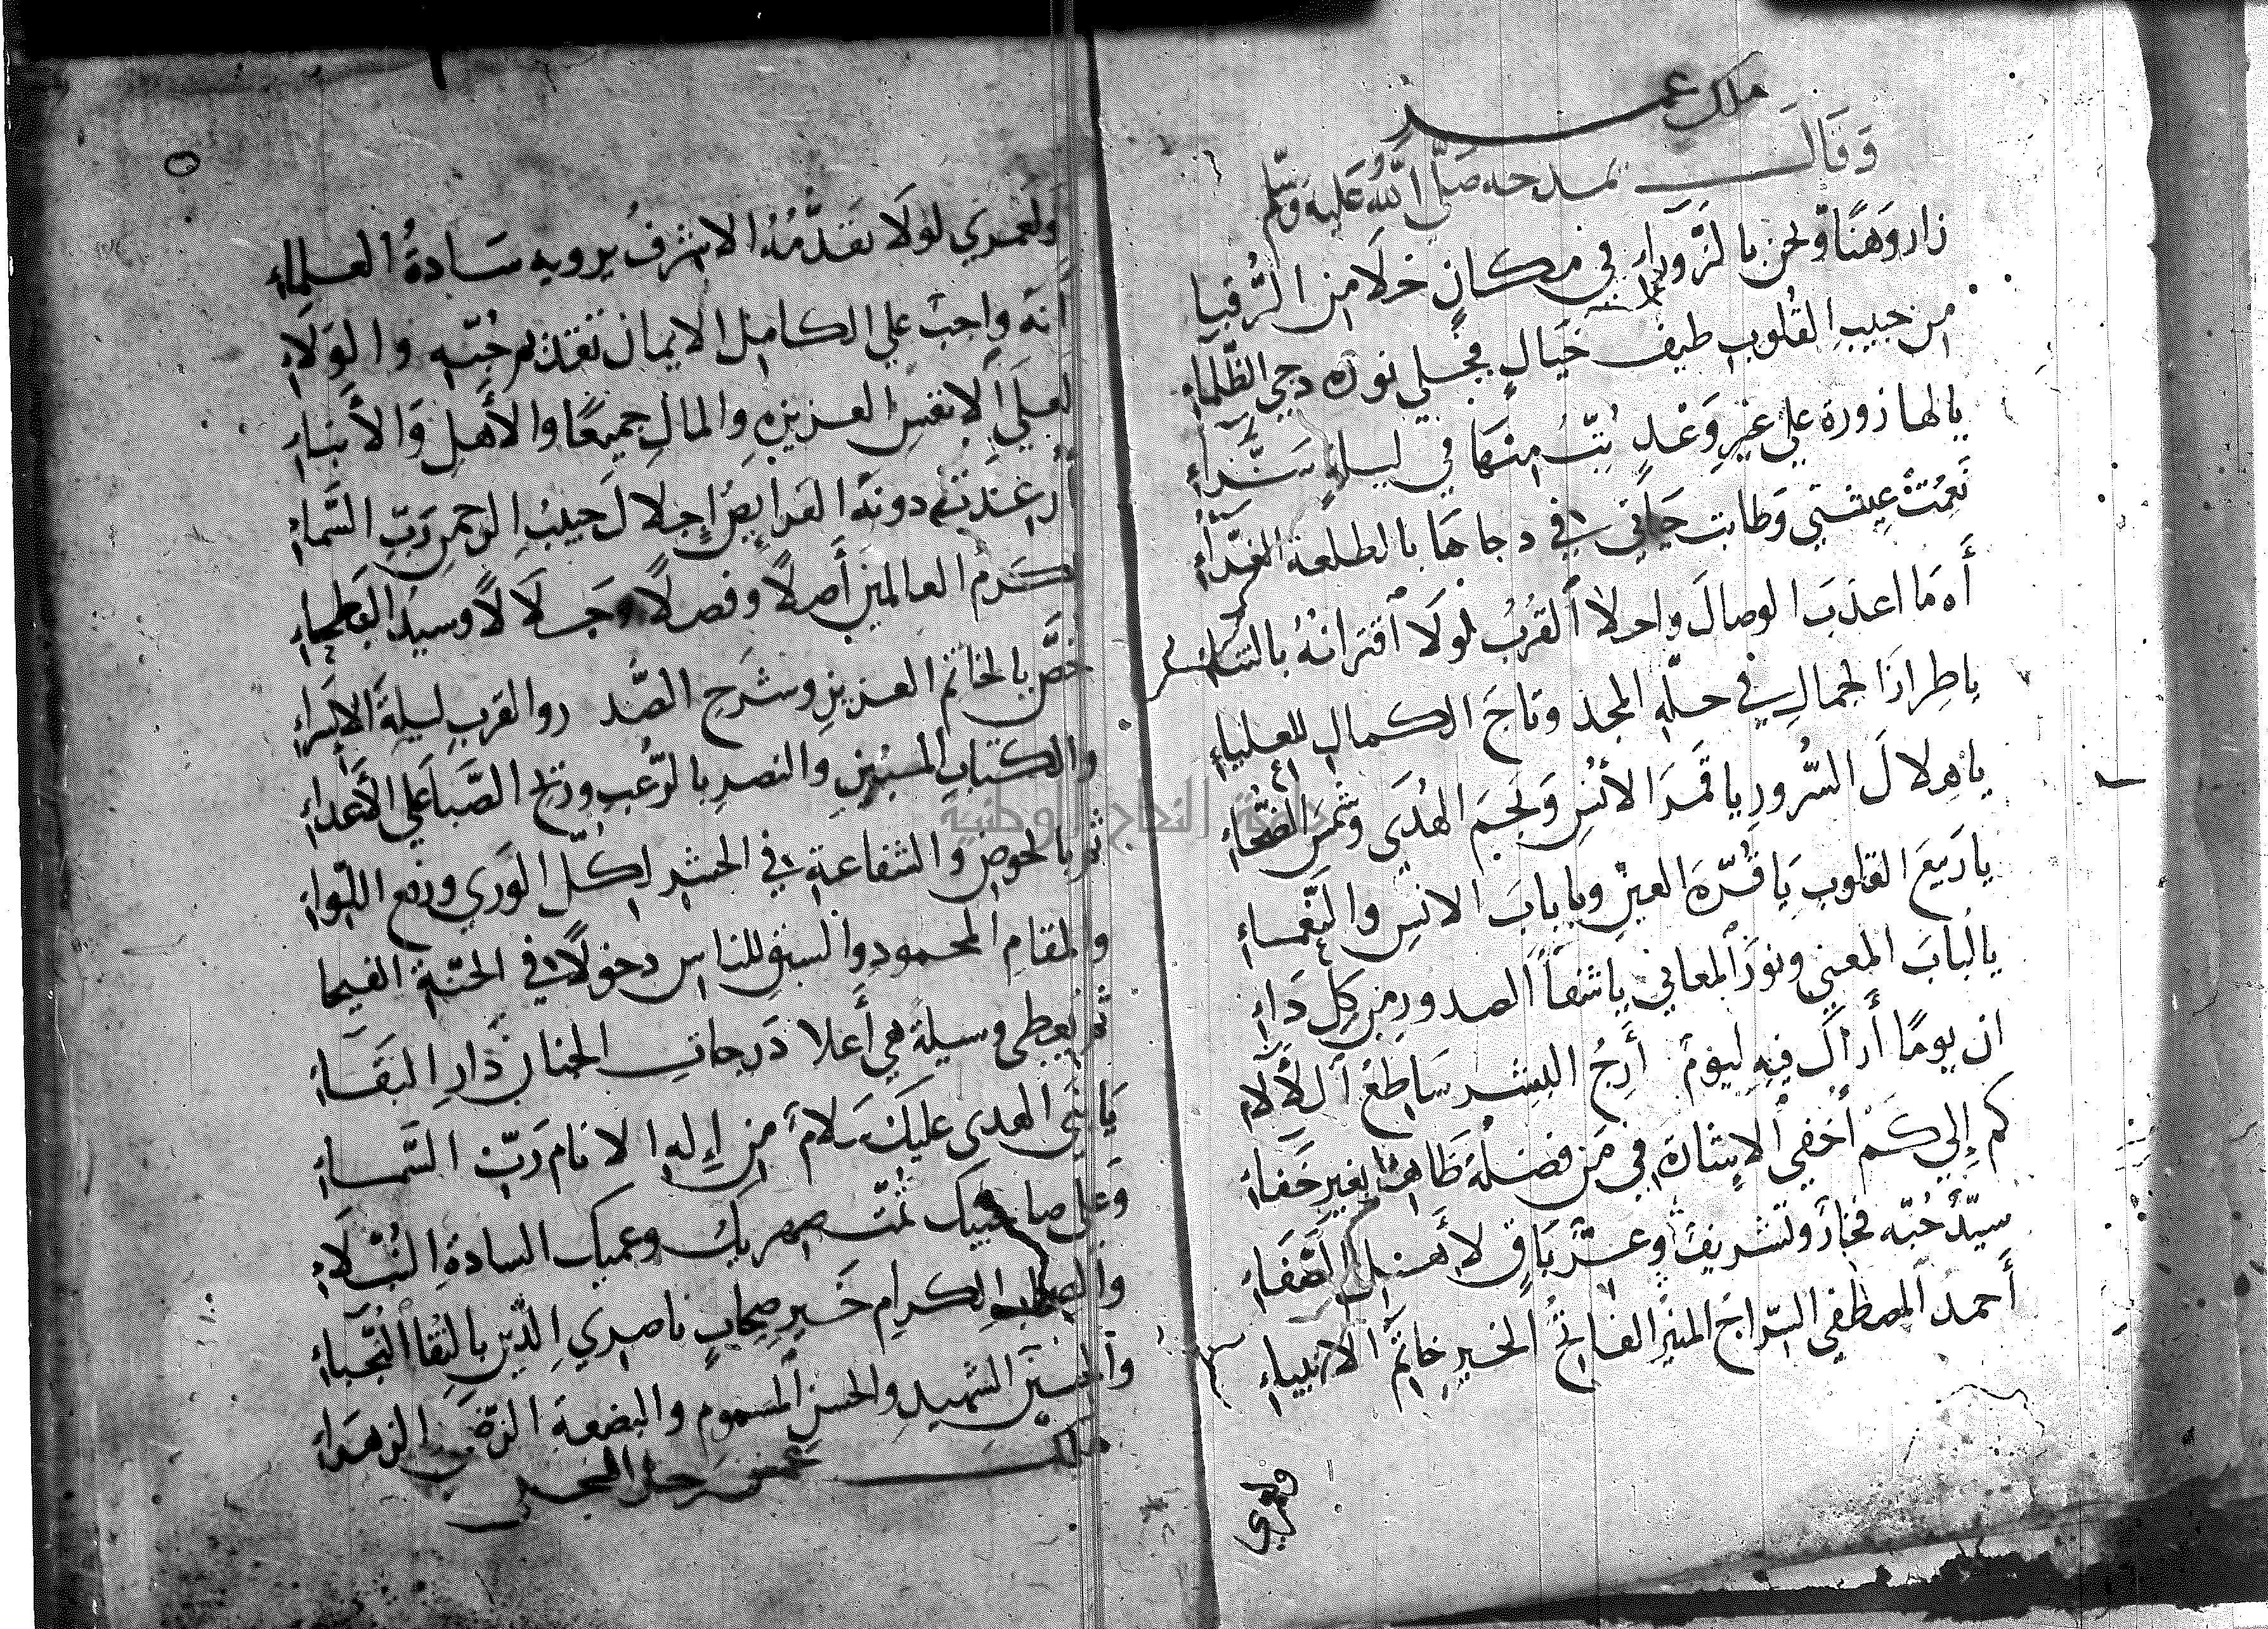 ملك عمر
وَقَالَ يمدحه صَلَّى اللهُ عَلَيْهِ وَسَلَّم
زار وَهنًا وَنحن بالزَّوراءِ في مكانٍ خلا من الرُّقبا
من حبيبِ القُلوبِ طيف خَيالٍ فجلي نوره دجي الظَّلماءِ
يالها زورة علي غيرِ وَعْدٍ بتّ منهَا في ليلةٍ سَرّاءِ
نَعِمُتْ عيشتي وَطابت حَياتي في دجاهَا بالطلعة الغرّاءِ
أه مَا اعذبَ الوصالَ واحلا القُربُ لولا اقترانهُ بالتنائي
يا طِرازَ الجمالِ في حلّة المجد وتاجَ الكمالِ للعلياءِ
يا هلالَ السُّرورِ يا قمَرَ الأُنْسِ وَنجمَ الهُدَى وَشمسَ الضُّحاءِ
يا ربيعَ القلوبِ يَا قُرّةَ العينِ ويا بابَ الانسِ والنَّعماءِ
يا لُبابَ المعني ونورَ المعاني يا شفاَ الصدورِ من كلِّ دَاءِ
ان يومًا أراكَ فيه ليومٌ أَرِجُ البشرِ سَاطِعُ اللألاءِ
كم إلي كَمْ أُخفي الاشارةَ في مَن فضلهُ ظاهرٌ بغيرِ خَفاءِ
سيّدٌ حُبّه فخارٌ وتشريفٌ وعزٌّ بَاقٍ لأهل الصَّفَاءِ
أَحمدُ المصطفي السّراجُ المنيرُ الفاتحُ الخيرِ خاتمُ الانبياءِ
ولعمري
وَلعَمري لولَا تقدّمُهُ الاشرفُ يرويه سَادةُ العلماءِ
أنّه واجبٌ علي الكامل الايمان تقديم حُبّه والوَلَاءِ
لعلَي الانفسِ العزيزةِ والمالِ جميعًا والأهلِ وَالأبناءِ
دونه الفرايض إجلالَ حبيبِ الرحمنِ رَبِّ السَّماءِ
كرمُ العالمينَ أصلًا وفصلًا وجَلَالًا وسيدُ البَطحاءِ
خُصَّ بالخاتمِ العزيزِ وشرَحِ الصَّدر والقربِ ليلةَ الاسراءِ
والكتابِ المبينِ والنصرِ بالرّعبِ وريحِ الصَّبا علي الأعداءِ
ثم بالحوضِ والشفاعةِ في الحشر لكلّ الوَري ورفع اللّواءِ
والمقامِ المحمودِ والسبقِ للناس دخولًا في الجنّة الفيحا
ثم يعطى وسيلة هي أعلا دَرجاتِ الجنانِ دارِ البقَاءِ
يَا نبَي الهدي عليكَ سَلامٌ من إلهِ الانام رَبِّ السَّماءِ
وَعلى صاحبيك ثُمّت صهريكَ وعميك السادةِ النُبَلَاءِ
والصحابِ الكرامِ خَيرِ صِحابٍ ناصري الدّينِ بالتقا النُّجباءِ
والحسينِ الشهيدِ والحسنِ المسمومِ والبضعةِ الزهراءِ
ملك عمر